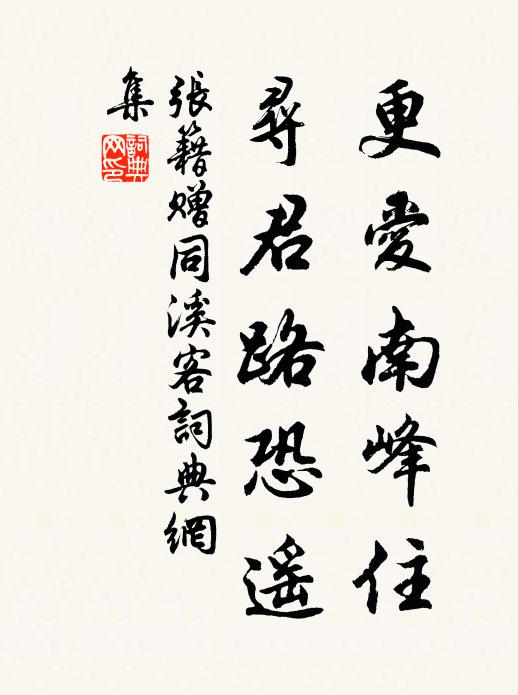 更愛南峰住
尋君路恐遥
張籍贈同溪客詞典網
集
詞典
网印